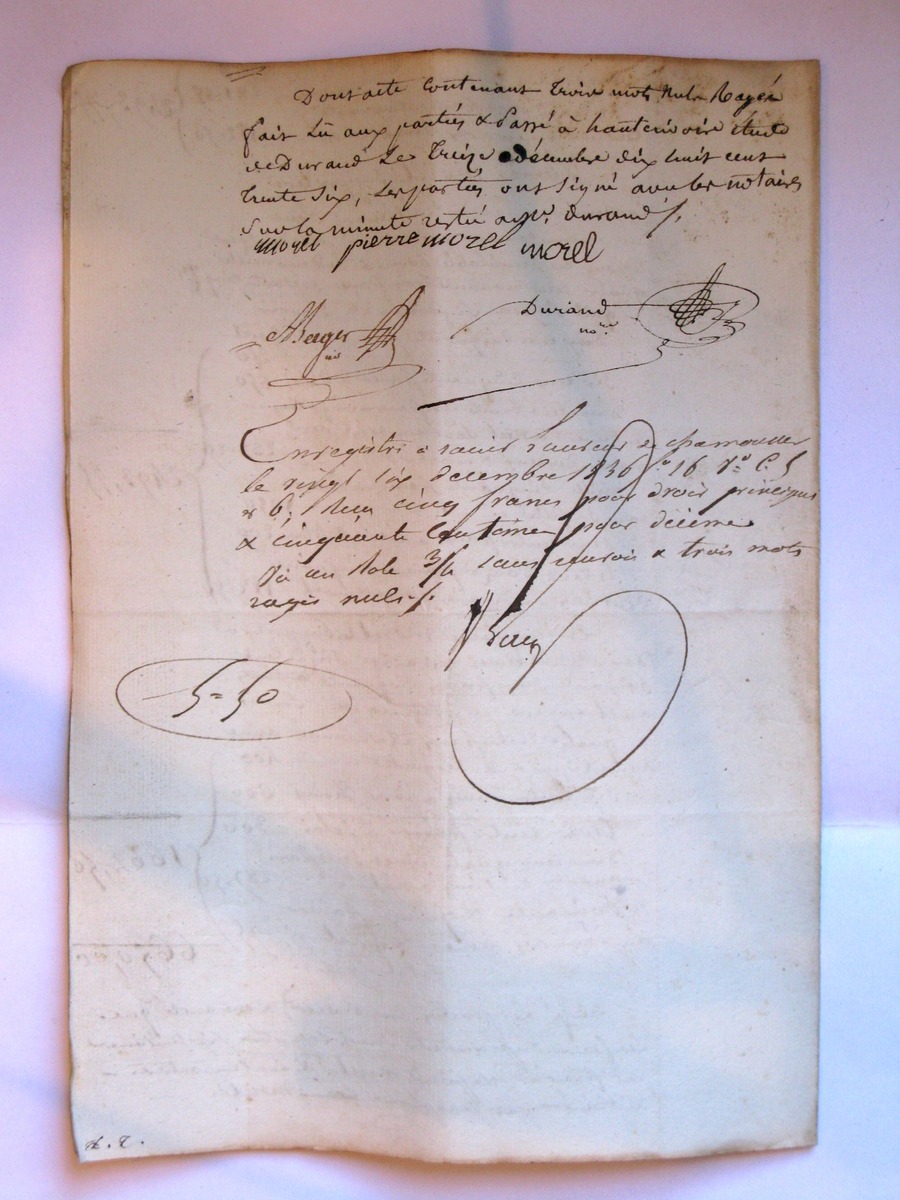 Dont acte Contenant trois mots Nuls Rayés
fait Lû aux parties & Passé à hauterivoire étude
de Durand Le treize décembre dix huit cent
trente Six, Les parties ont Signé avec les notaires
Sur la minute restée a Mr. durand
morel pierre morel morel
Berger Durand
nore nore
Enregistré à saint Laurent de chamousset
le vingt six decembre 1836 fo 16 Vo C. 5
& 6. Recu cinq francs pour droit principal
& cinquante Centimes pour décime
Vu au Role 3/4 sans renvoi & trois mots
rayés nuls
5=50